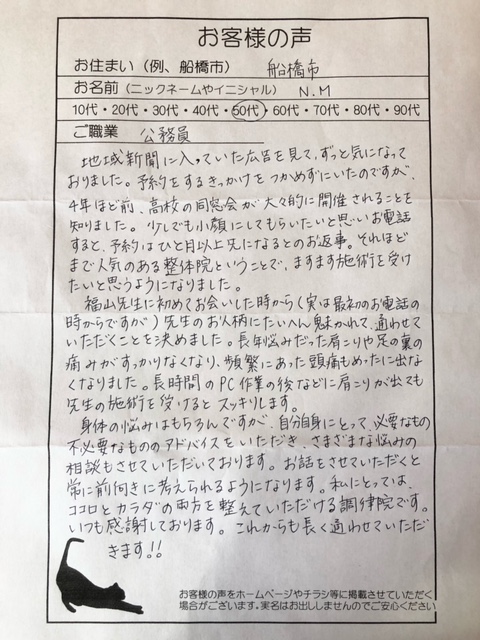 お客様の声
お住まい（例、船橋市） 船橋市
お名前（ニックネームやイニシャル） N.M
10代・20代・30代・40代・50代・60代・70代・80代・90代
ご職業 公務員
地域新聞に入っていた広告を見て、ずっと気になって
おりました。予約をするきっかけをつかめずにいたのですが、
4年ほど前、高校の同窓会が大々的に開催されることを
知りました。少しでも小顔にしてもらいたいと思いお電話
すると、予約はひと月以上先になるとのお返事。それほど
まで人気のある整体院ということで、ますます施術を受け
たいと思うようになりました。
福山先生に初めてお会いした時から（実は最初のお電話の
時からですが）先生のお人柄にたいへん魅かれて、通わせて
いただくことを決めました。長年悩みだった肩こりや足の裏の
痛みがすっかりなくなり、頻繁にあった頭痛もめったに出な
くなりました。長時間のPC作業の後などに肩こりが出ても
先生の施術を受けるとスッキリします。
身体の悩みはもちろんですが、自分自身にとって、必要なもの
不必要なもののアドバイスをいただき、さまざまな悩みの
相談もさせていただいております。お話をさせていただくと
常に前向きに考えられるようになります。私にとっては、
ココロとカラダの両方を整えていただける調律院です。
いつも感謝しております。これからも長く通わせていただ
きます!!
お客様の声をホームページやチラシ等に掲載させていただく
場合がございます。実名はお出ししませんのでご安心ください